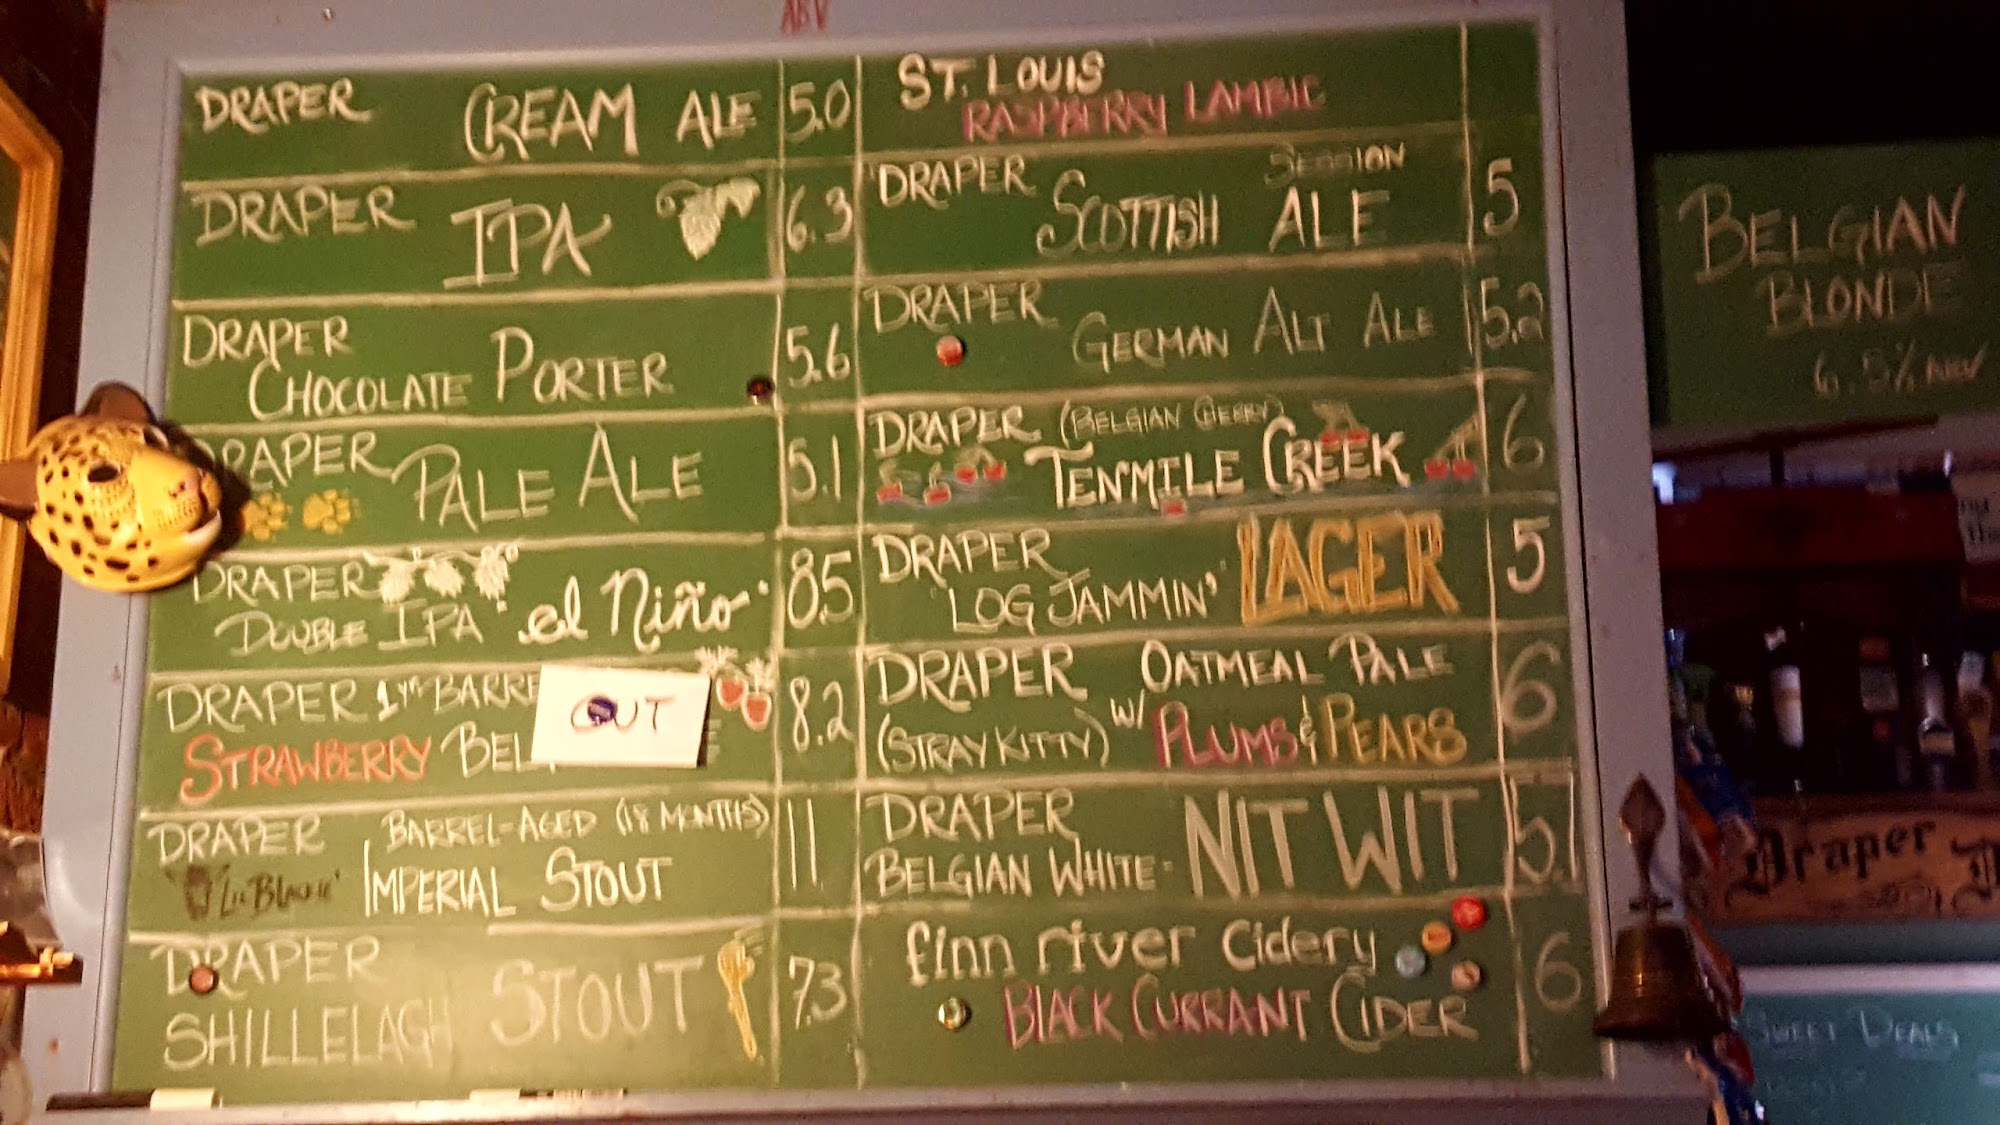 ABV
DRAPER CREAM ALE 5.0
DRAPER IPA 6.3
DRAPER
CHOCOLATE PORTER 5.6
DRAPER PALE ALE 5.1
DRAPER
DOUBLE IPA "el Niño" 8.5
DRAPER 1yr BARRE
STRAWBERRY BEL 8.2
OUT
DRAPER BARREL-AGED (18 MONTHS)
"LIL BLACKIE" IMPERIAL STOUT 11
DRAPER
SHILLELAGH STOUT 7.3
ST. LOUIS
RASPBERRY LAMBIC
DRAPER SESSION
SCOTTISH ALE 5
DRAPER
GERMAN ALT ALE 5.2
DRAPER (BELGIAN CHERRY)
TENMILE CREEK 6
DRAPER
"LOG JAMMIN'" LAGER 5
DRAPER OATMEAL PALE
(STRAY KITTY) W/ PLUMS & PEARS 6
DRAPER
BELGIAN WHITE- NIT WIT 5.1
finn river cidery
BLACK CURRANT CIDER 6
BELGIAN
BLONDE
6.5% ABV
Draper
SWEET DEALS